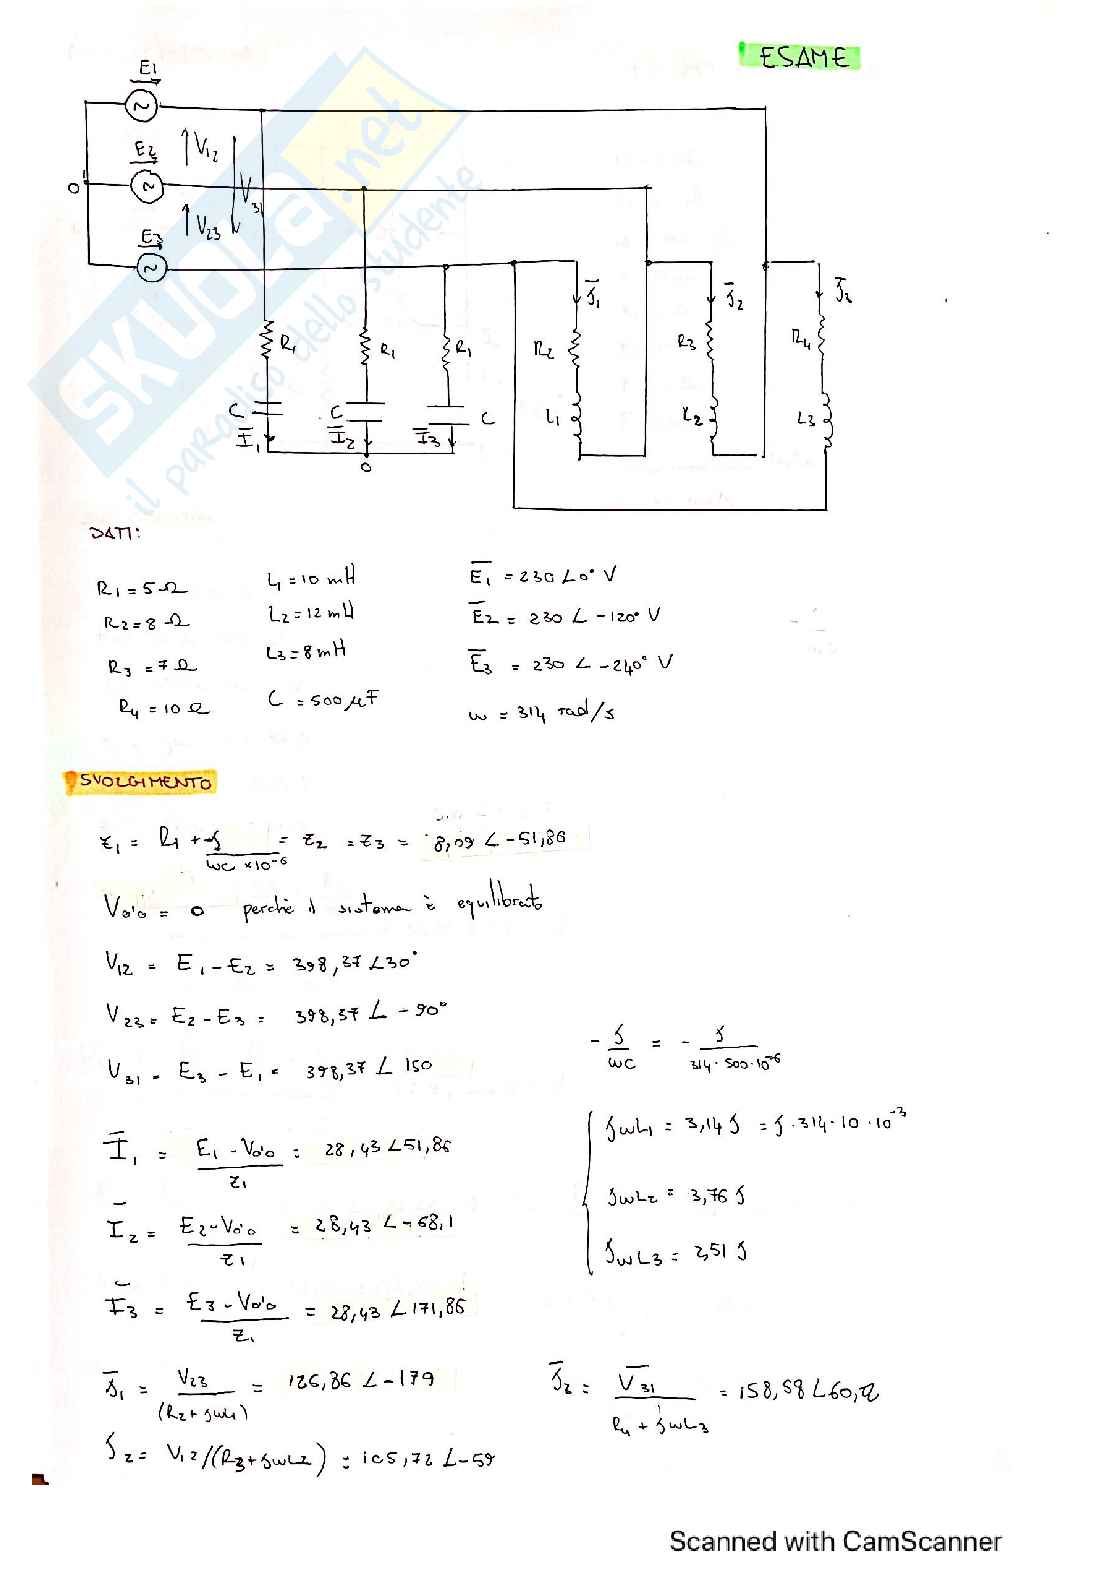 ESAME
E1
E2
E3
V12
V23
V31
0'
SKUOLA.net
il paradiso dello studente
R1
R1
R1
R2
R3
R4
C
C
C
L1
L2
L3
I1
I2
I3
J1
J2
J3
0
DATI:
R1 = 5 Ω
R2 = 8 Ω
R3 = 7 Ω
R4 = 10 Ω
L1 = 10 mH
L2 = 12 mH
L3 = 8 mH
C = 500 μF
E1 = 230 ∠0° V
E2 = 230 ∠ -120° V
E3 = 230 ∠ -240° V
ω = 314 rad/s
SVOLGIMENTO
Z1 = R1 + -j/(ωC × 10^-6) = Z2 = Z3 = 8,09 ∠ -51,86
Vo'o = 0 perchè il sistema è equilibrato
V12 = E1 - E2 = 398,37 ∠30°
V23 = E2 - E3 = 398,37 ∠ -90°
V31 = E3 - E1 = 398,37 ∠ 150
- j/ωC = - j/(314 · 500 · 10^-6)
I1 = (E1 - Vo'o)/Z1 = 28,43 ∠51,86
I2 = (E2 - Vo'o)/Z1 = 28,43 ∠ -68,1
I3 = (E3 - Vo'o)/Z1 = 28,43 ∠171,86
jωL1 = 3,14 j = j · 314 · 10 · 10^-3
jωL2 = 3,76 j
jωL3 = 2,51 j
J1 = V23/(R2 + jωL1) = 126,86 ∠ -179
J2 = V12/(R3 + jωL2) = 105,72 ∠ -59
J2 = V31/(R4 + jωL3) = 158,58 ∠60,12
Scanned with CamScanner